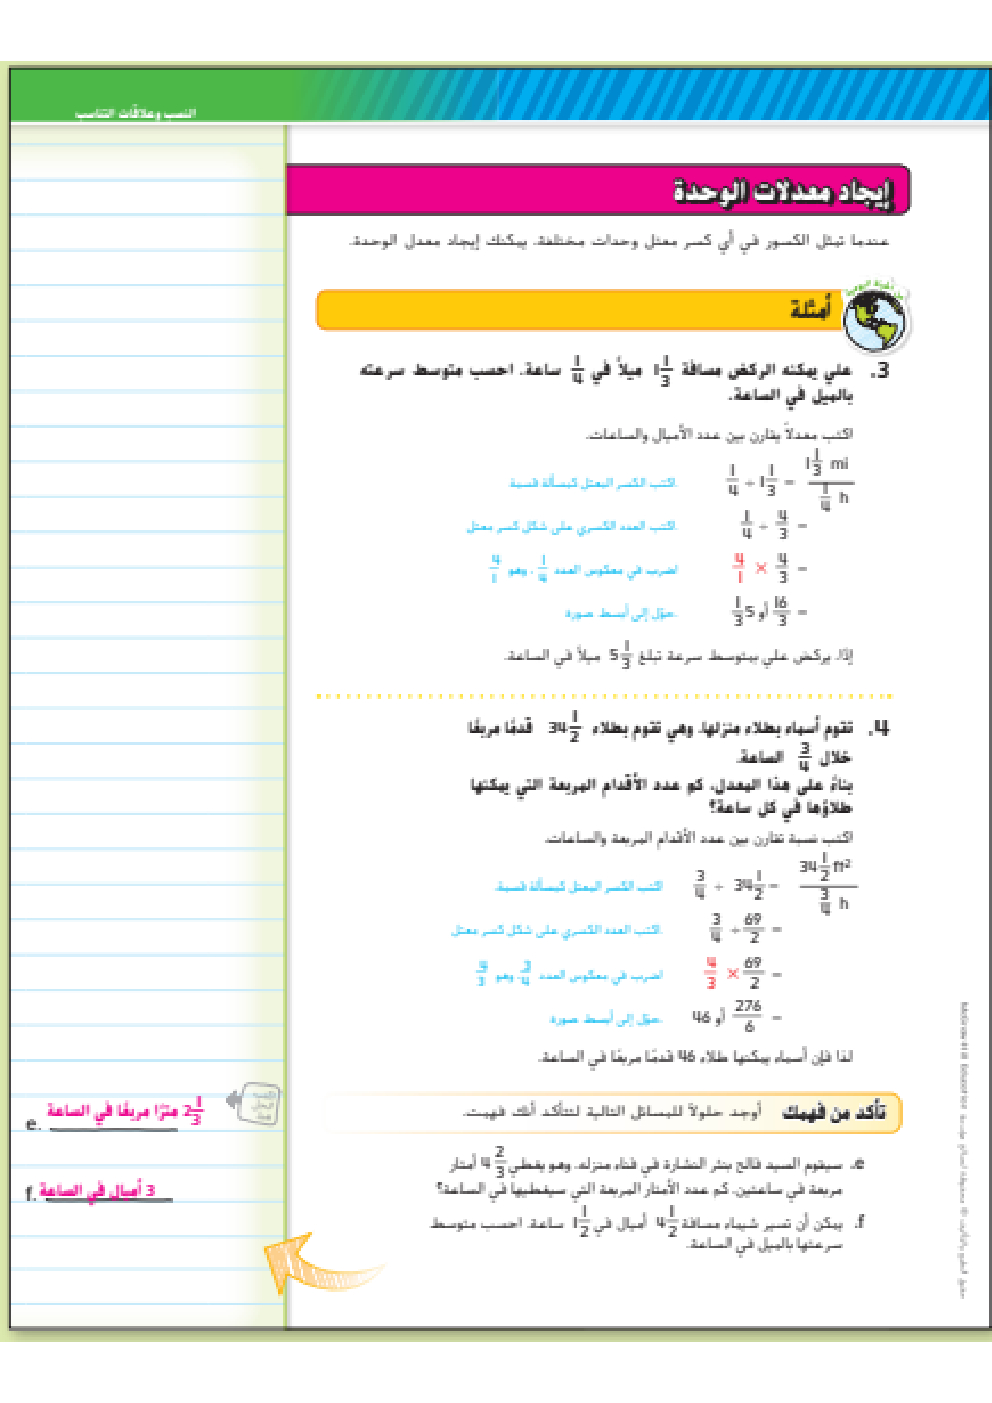 النسب وعلاقات التناسب
إيجاد معدلات الوحدة
عندما تمثل الكسور في أي كسر معتل وحدات مختلفة، يمكنك إيجاد معدل الوحدة.
أمثلة
3. علي يمكنه الركض مسافة 1 1/3 ميلاً في 1/4 ساعة. احسب متوسط سرعته
بالميل في الساعة.
اكتب معدلاً يقارن بين عدد الأميال والساعات.
1 1/3 mi / 1/4 h = 1 1/3 ÷ 1/4 اكتب الكسر المعتل كمسألة قسمة.
= 4/3 ÷ 1/4 اكتب العدد الكسري على شكل كسر معتل.
= 4/3 × 4/1 اضرب في معكوس العدد 1/4، وهو 4/1
= 16/3 أو 5 1/3 حوّل إلى أبسط صورة.
إذًا، يركض علي بمتوسط سرعة تبلغ 5 1/3 ميلاً في الساعة.
4. تقوم أسماء بطلاء منزلها. وهي تقوم بطلاء 34 1/2 قدمًا مربعًا
خلال 3/4 الساعة.
بناءً على هذا المعدل، كم عدد الأقدام المربعة التي يمكنها
طلاؤها في كل ساعة؟
اكتب نسبة تقارن بين عدد الأقدام المربعة والساعات.
34 1/2 ft² / 3/4 h = 34 1/2 ÷ 3/4 اكتب الكسر المعتل كمسألة قسمة.
= 69/2 ÷ 3/4 اكتب العدد الكسري على شكل كسر معتل.
= 69/2 × 4/3 اضرب في معكوس العدد 3/4، وهو 4/3
= 276/6 أو 46 حوّل إلى أبسط صورة.
لذا فإن أسماء يمكنها طلاء 46 قدمًا مربعًا في الساعة.
تأكد من فهمك أوجد حلولاً للمسائل التالية لتتأكد أنك فهمت.
e. سيقوم السيد فالح بنثر النشارة في فناء منزله. وهو يغطي 4 2/3 أمتار
مربعة في ساعتين. كم عدد الأمتار المربعة التي سيغطيها في الساعة؟
f. يمكن أن تسير شيماء مسافة 4 1/2 أميال في 1 1/2 ساعة. احسب متوسط
سرعتها بالميل في الساعة.
e. 2 1/3 مترًا مربعًا في الساعة
f. 3 أميال في الساعة